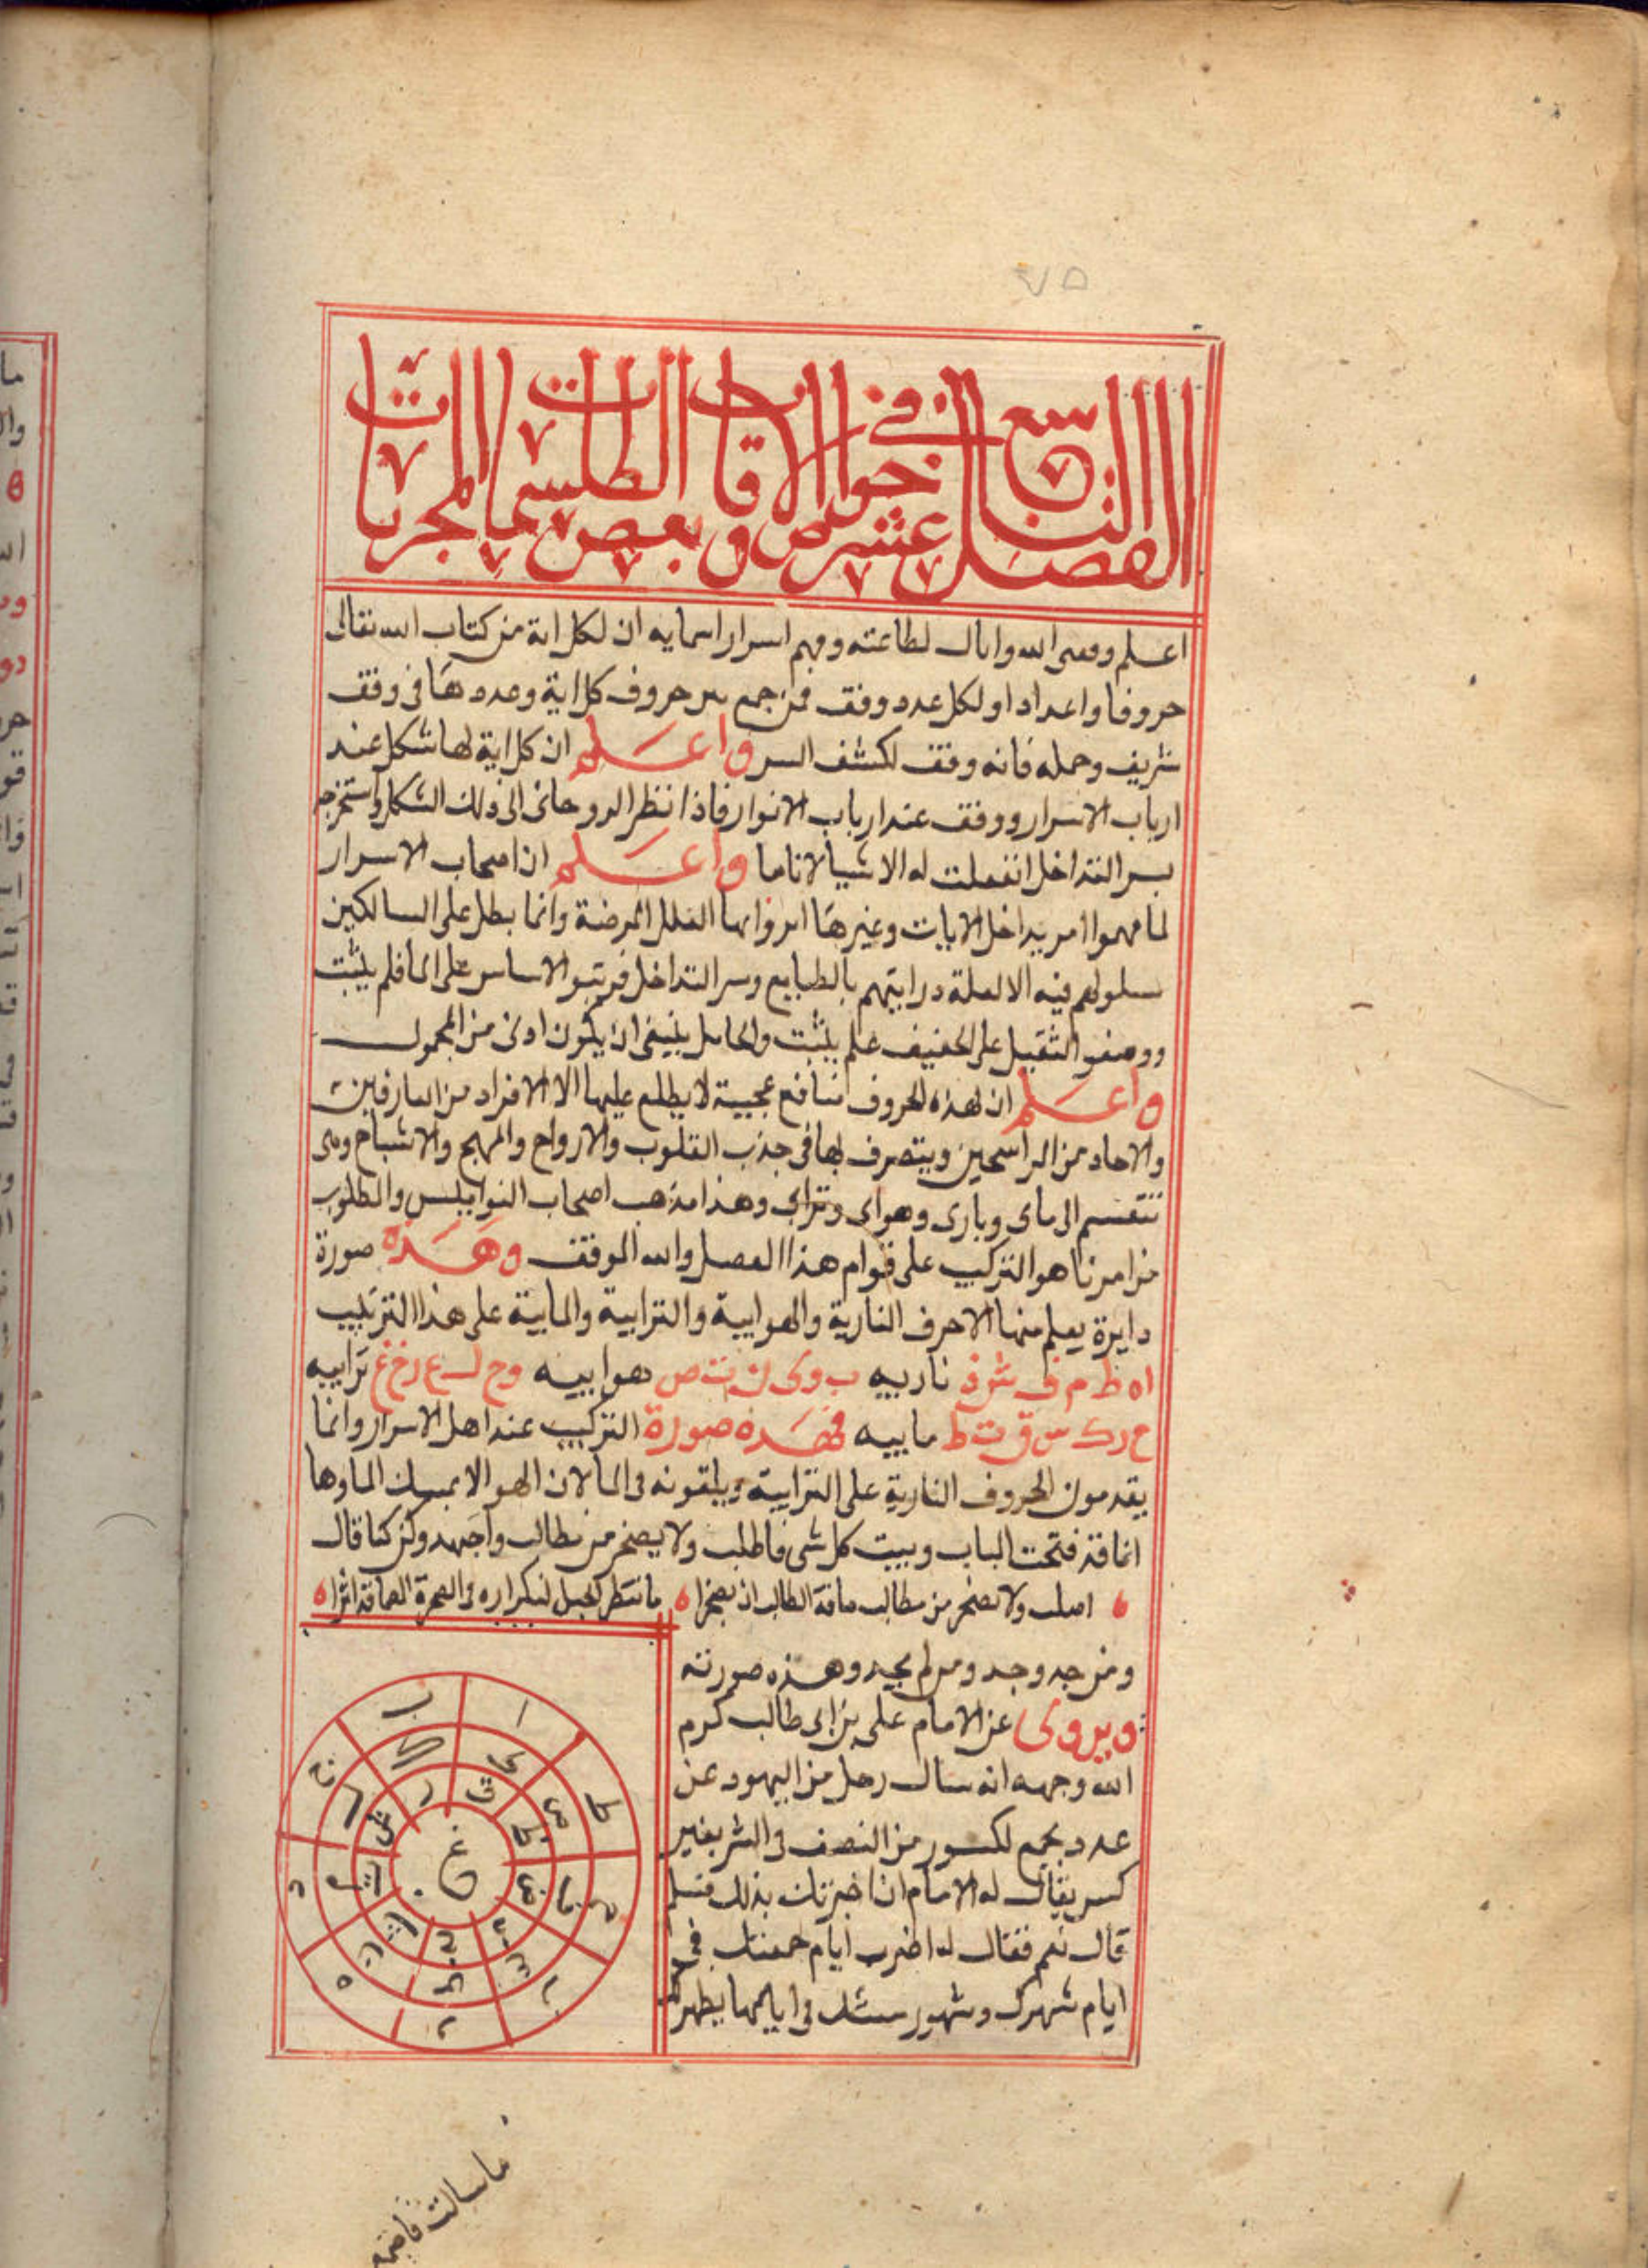 ٧٥
الفصل التاسع عشر في خواص الاوفاق و بعض الطلسمات المجربات
اعلم وفقنى الله واياك لطاعته وفهم اسرار اسمايه ان لكل اية من كتاب الله تعالى
حروفا واعدادا ولكل عدد وفق فمن جمع بين حروف كل اية وعددها فى وفق
شريف وحمله فانه وفق لكشف السر واعلم ان كل اية لها شكل عند
ارباب الاسرار ووفق عند ارباب الانوار فاذا نظر الروحانى الى ذلك الشكل واستخرجه
بسر التداخل انفعلت له الاشيا لانا ما واعلم ان اصحاب الاسرار
لما فهموا امر تداخل الايات وغيرها ابروا بها العلل المرضة وانما بطل على السالكين
سلوكهم فيه الا لعلة درايتهم بالطبايع وسر التداخل فرتبوا الاساس على الما فلم يثبت
ووضعوا الثقيل على الخفيف فلم يثبت والحامل ينبغى ان يكون ادنى من المحمول
واعلم ان لهذه الحروف منافع عجيبة لا يطلع عليها الا الافراد من العارفين
والاحاد من الراسخين ويتصرف بها فى جذب القلوب والارواح والمهج والاشباح وهى
تنقسم الى ماى ونارى وهواى وترابى وهذا مذهب اصحاب النواميس والمطلوب
من امرنا هو التركيب على قوام هذا الفصل والله الموفق وهذه صورة
دايرة يعلم منها الاحرف النارية والهوايية والترابية والمايية على هذا الترتيب
ا ه ط م ف ش ذ ناريه ب و ى ن ت ص هواييه وح ل ع رخ غ ترابيه
ح ر ك س ق ث ط ماييه فهذه صورة التركيب عند اهل الاسرار وانما
يقدمون الحروف النارية على الترابية ويلقونه فى الما لان الهوا لا يمسك الما وها
انا قد فتحت الباب وبينت كل شى فاطلب ولا يضجر من مطالب واجهد وكن كما قال
اطلب ولا تضجر من مطالب فافة الطالب ان يضجرا ما تنظر الحبل لتكراره فى الصخرة الصما قد اثرا
ومن جد وجد ومن لم يجد وهذه صورته
ويروى عن الامام على بن ابى طالب كرم
الله وجهه انه سال رجل من اليهود عن
عدد يجمع لكسور من النصف الى العشر بغير
كسر فقال له الامام ان اخبرتك بذلك فتسلم
قال نعم فقال له اضرب ايام جمعتك فى
ايام شهرك وشهور سنتك فى ايامها يظهر لك
ا ب ج د ه
ط ح
ى ك ل م ن
ص
ق ر ش ت
ظ ض
غ
ما سالت فاضرب